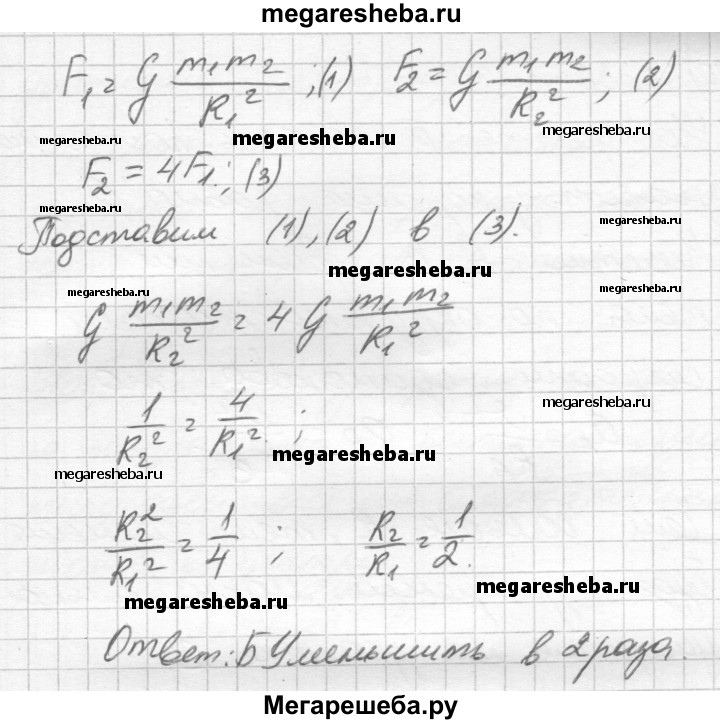 megaresheba.ru
F₁ = G m₁m₂/R₁² ; (1) F₂ = G m₁m₂/R₂² ; (2)
megaresheba.ru megaresheba.ru megaresheba.ru
F₂ = 4F₁ ; (3)
megaresheba.ru
Подставим (1), (2) в (3).
megaresheba.ru
megaresheba.ru
megaresheba.ru
G m₁m₂/R₂² = 4 G m₁m₂/R₁²
1/R₂² = 4/R₁² ;
megaresheba.ru
megaresheba.ru
megaresheba.ru
R₂²/R₁² = 1/4 ; R₂/R₁ = 1/2.
megaresheba.ru
megaresheba.ru
Ответ: Б Уменьшить в 2 раза.
Мегарешеба.ру